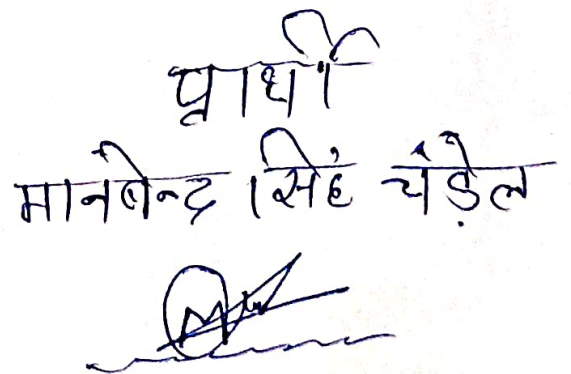 प्रार्थी
मानवेन्द्र सिंह चंडेल